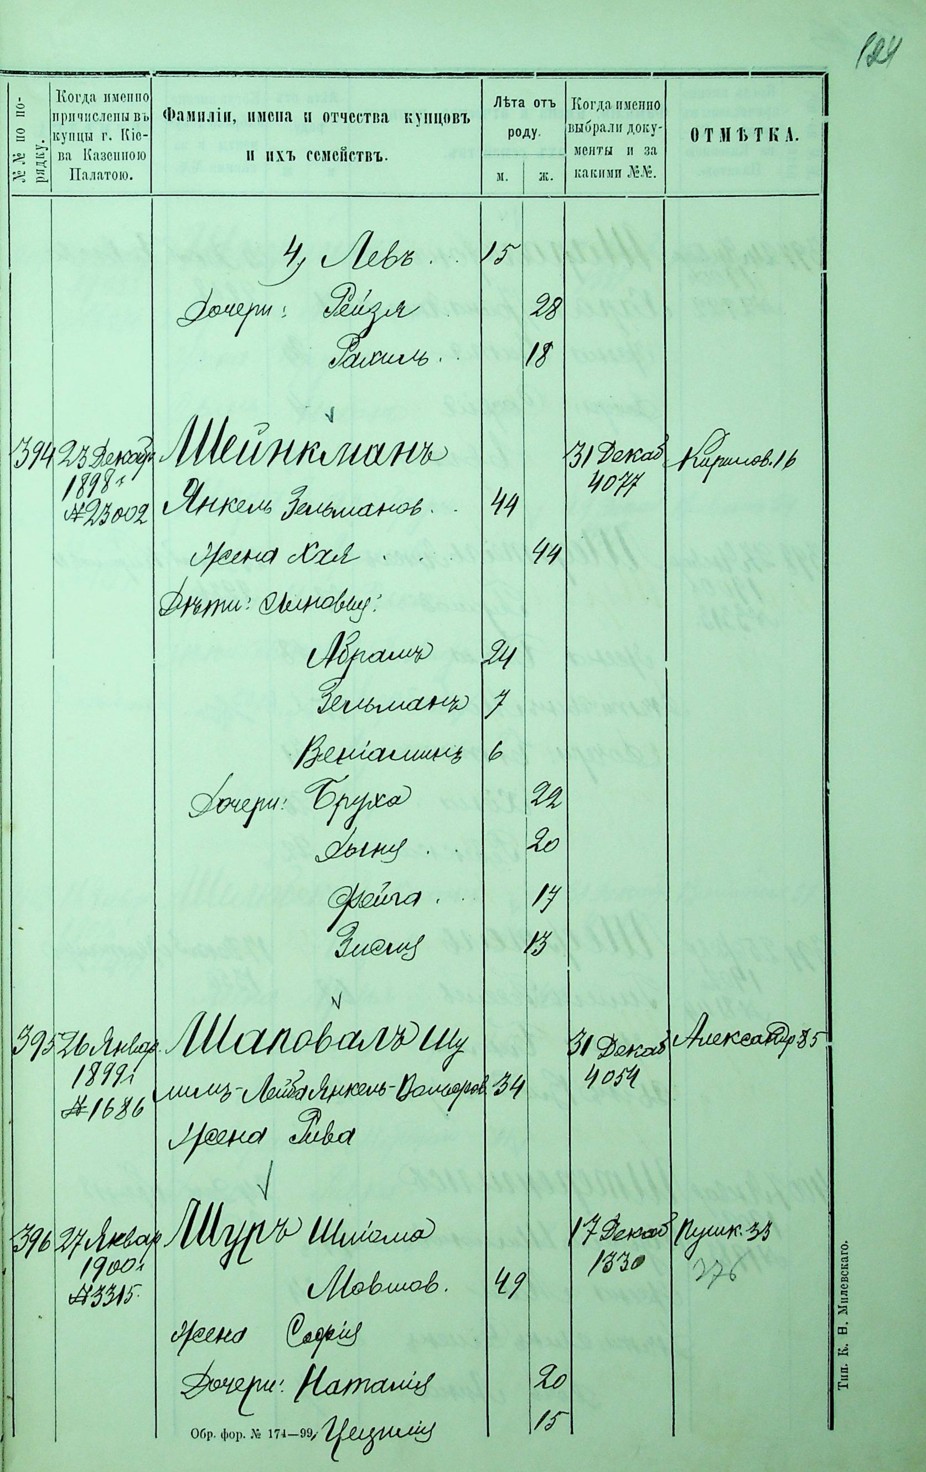 124
№№ по по-
рядку.
Когда именно
причислены въ
купцы г. Кіе-
ва Казенною
Палатою.
Фамиліи, имена и отчества купцовъ
и ихъ семействъ.
Лѣта отъ
роду.
м. ж.
Когда именно
выбрали доку-
менты и за
какими №№.
ОТМѢТКА.
4, Левъ . . 15
Дочери: Рейзя 28
Рахиль . 18
394 23 Декабр Шейнкманъ 31 Декаб Кирилов. 16
1898 г 4077
№23002 Янкель Зельманов . . 44
Жена Хая 44
Дѣти: Сыновья:
Абрамъ 24
Зельманъ 7
Веніаминъ 6
Дочери: Бруха 22
Дыня . . 20
Фейга . . 17
Зисля 13
395 26 Январ. Шаповалъ Шу 31 Декаб Александр 85
1899 г 4054
№1686 лимъ-Лейба Янкель-Вольфов. 34
Жена Рива
396 27 Январ Шуръ Шлiома 17 Декаб Пушк. 33
1900 г 1330 276
№3315. Мовшов. 49
Жена Софія
Дочери: Наталія 20
Цецилія 15
Обр. фор. № 174—99.
Тип. К. Н. Милевскаго.